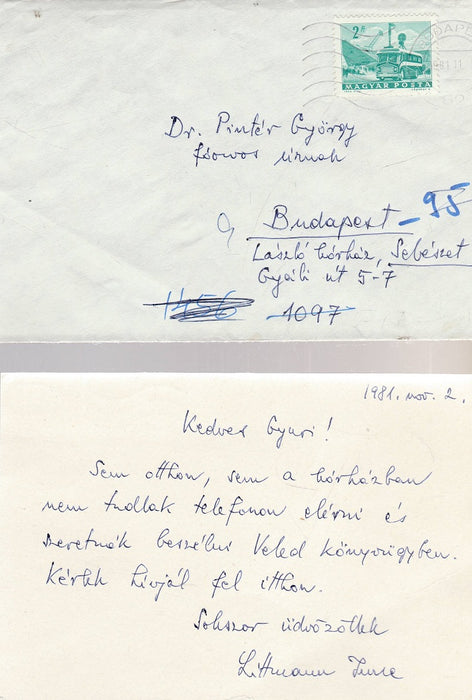 2 Ft
BUDAPE
981. 11
MAGYAR POSTA
Dr. Pintér György
főorvos úrnak
Budapest - 95
László kórház, Sebészet
Gyáli út 5-7
1456 1097
1981. nov. 2.
Kedves Gyuri!
Sem otthon, sem a kórházban
nem tudlak telefonon elérni és
szeretnék beszélni Veled könyvügyben.
Kérlek hívjál fel itthon.
Sokszor üdvözöllek
Littmann Imre